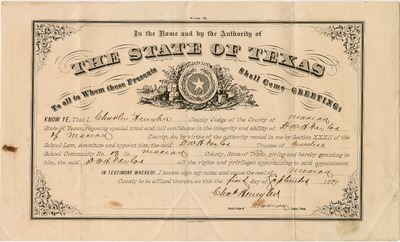 Form B.
In the Name and by the Authority of
THE STATE OF TEXAS
To all to Whom these Presents Shall Come GREETING:
KNOW YE, That I, Charles Hamilton County Judge of the County of Mason
State of Texas, reposing special trust and full confidence in the integrity and ability of
of Mason County, do, by virtue of the authority vested in me by Section XXXII of the
School Law, constitute and appoint him, the said Trustee of
School Community No. 13 in Mason County, State of Texas, giving and hereby granting to
him, the said all the rights and privileges appertaining to said appointment.
IN TESTIMONY WHEREOF, I hereto sign my name and cause the seal of Mason
County to be affixed hereto, on this the first day of September 187
County Judge of Mason County, Texas.